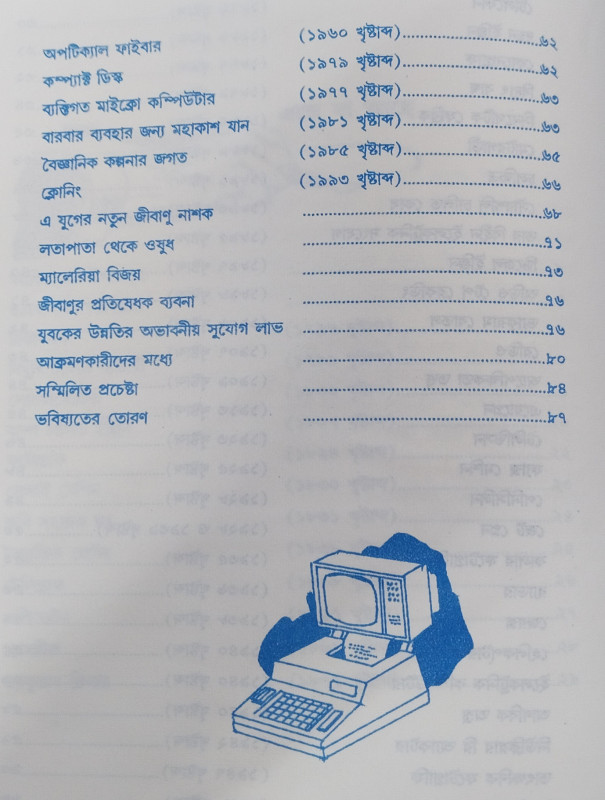 অপটিক্যাল ফাইবার (১৯৬০ খৃষ্টাব্দ)........................৬২
কম্প্যাক্ট ডিস্ক (১৯৭৯ খৃষ্টাব্দ)........................৬২
ব্যক্তিগত মাইক্রো কম্পিউটার (১৯৭৭ খৃষ্টাব্দ)........................৬৩
বারবার ব্যবহার জন্য মহাকাশ যান (১৯৮১ খৃষ্টাব্দ)........................৬৩
বৈজ্ঞানিক কল্পনার জগত (১৯৮৫ খৃষ্টাব্দ)........................৬৫
ক্লোনিং (১৯৯৩ খৃষ্টাব্দ)........................৬৬
এ যুগের নতুন জীবাণু নাশক ........................৬৮
লতাপাতা থেকে ওষুধ ........................৭১
ম্যালেরিয়া বিজয় ........................৭৩
জীবাণুর প্রতিষেধক ব্যবনা ........................৭৬
যুবকের উন্নতির অভাবনীয় সুযোগ লাভ ........................৭৬
আক্রমণকারীদের মধ্যে ........................৮০
সম্মিলিত প্রচেষ্টা ........................৮৪
ভবিষ্যতের তোরণ ........................৮৭